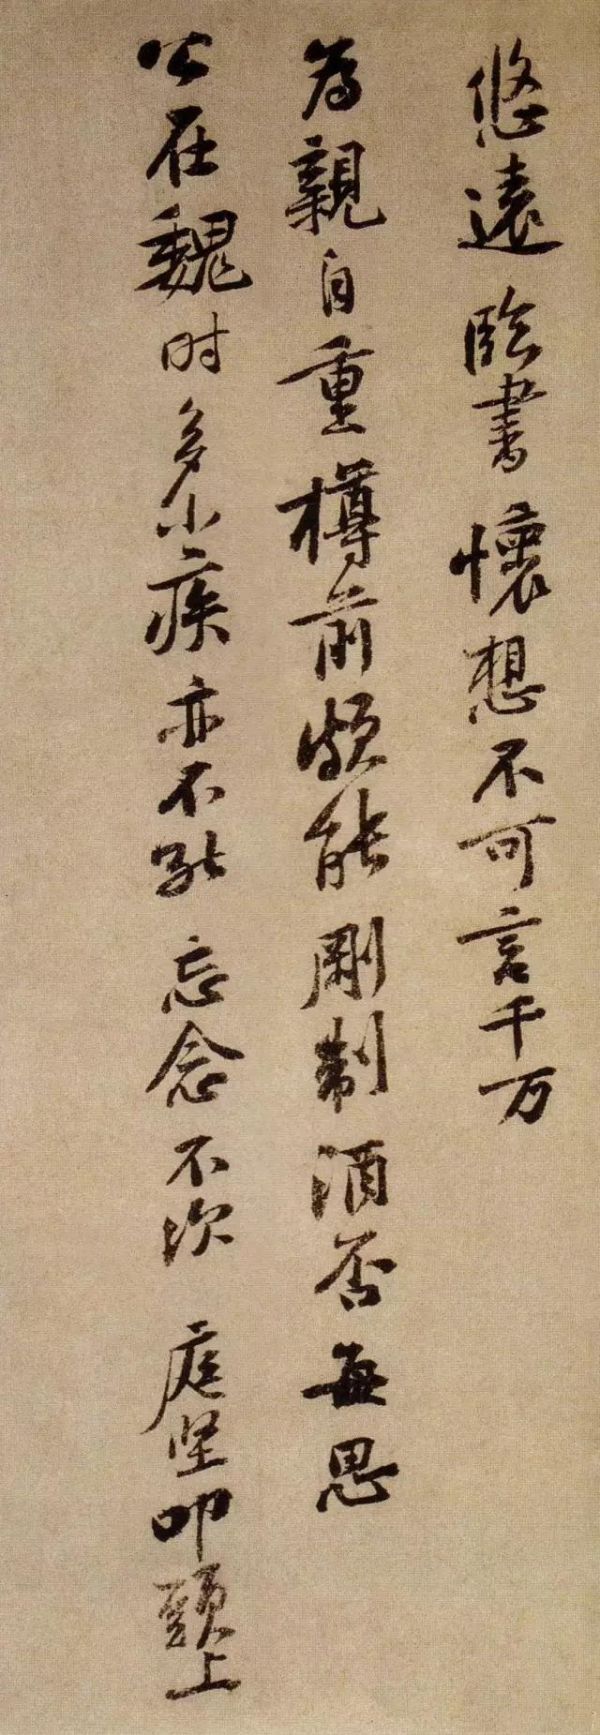 悠遠臨書懷想不可言千万
為親自重樽前頗能剛制酒否每思
公在魏時多小疾亦不能忘念不次庭堅叩頭上